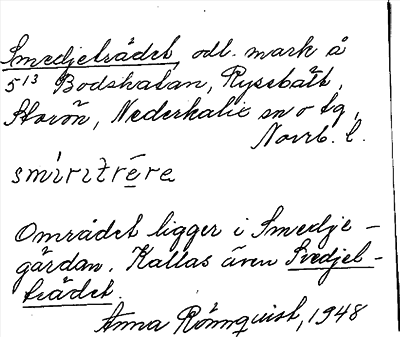 Smedjeträdet, odl. mark å
5¹³ Bodskatan, Rysebält,
Storön, Nederkalix sn o tg,
Norrb. l.
smìrıtrēre
Området ligger i Smedje-
gärdan. Kallas även Svedjet-
trädet.
Anna Rönnquist, 1948